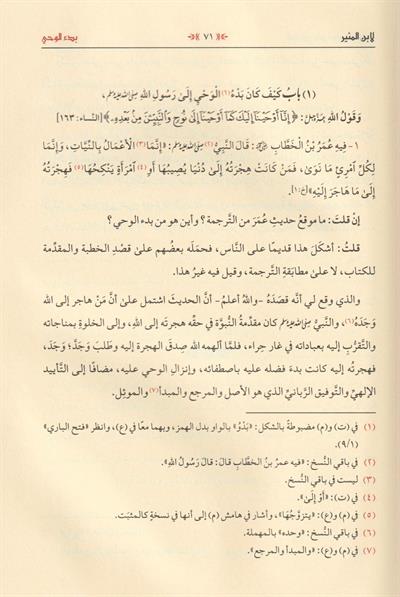 لابن المنير
﴿٧١﴾
بدء الوحي
(١) بابُ كَيْفَ كَانَ بَدْءُ(١) الْوَحْيِ إِلَىٰ رَسُولِ اللهِ صلى الله عليه وسلم،
وَقَوْلُ اللهِ ﷿: ﴿إِنَّا أَوْحَيْنَا إِلَيْكَ كَمَا أَوْحَيْنَا إِلَىٰ نُوحٍ وَالنَّبِيِّينَ مِنْ بَعْدِهِ﴾ [النساء: ١٦٣]
١- فِيهِ عُمَرُ بْنُ الْخَطَّابِ ﵁: قَالَ النَّبِيُّ(٢) صلى الله عليه وسلم: «إِنَّمَا(٣) الْأَعْمَالُ بِالنِّيَّاتِ، وَإِنَّمَا
لِكُلِّ امْرِئٍ مَا نَوَىٰ، فَمَنْ كَانَتْ هِجْرَتُهُ إِلَىٰ دُنْيَا يُصِيبُهَا أَوِ(٤) امْرَأَةٍ يَنْكِحُهَا(٥) فَهِجْرَتُهُ
إِلَىٰ مَا هَاجَرَ إِلَيْهِ» [خ:١].
إنْ قلتَ: ما موقعُ حديثِ عُمَرَ من التَّرجمة؟ وأين هو من بدء الوحي؟
قلتُ: أشكَلَ هذا قديمًا على النَّاس، فحمَلَه بعضُهم علىٰ قصْدِ الخطبة والمقدِّمة
للكتاب، لا علىٰ مطابَقةِ التَّرجمة، وقيل فيه غيرُ هذا.
والذي وقع لي أنَّه قصَدَهُ -واللهُ أعلمُ- أنَّ الحديثَ اشتمل علىٰ أنَّ مَنْ هاجر إلى الله
وَجَدَهُ(٦)، والنبيُّ صلى الله عليه وسلم كان مقدِّمةُ النبوَّة في حقِّه هجرتَه إلى الله، وإلى الخلوةِ بمناجاته
والتقرُّبِ إليه بعباداته في غار حِراء، فلمَّا ألهمه الله صِدقَ الهجرة إليه وطلَبَ وَجَدَّ؛ وَجَدَ،
فهجرتُه إليه كانت بدءَ فضله عليه باصطفائه، وإنزالِ الوحي عليه، مضافًا إلى التَّأييد
الإلهيِّ والتَّوفيق الرَّبانيِّ الذي هو الأصل والمرجع والمبدأ(٧) والموئِل.
(١) في (ت) و(م) مضبوطة بالشكل: «بَدْوُ» بالواو بدل الهمز، وبهما معًا في (ع)، وانظر «فتح الباري»
(٩/١).
(٢) في باقي النُّسخ: «فيه عمرُ بنُ الخطَّابِ قالَ: قالَ رَسُولُ اللهِ».
(٣) ليست في باقي النُّسخ.
(٤) في (ت): «أَوْ إِلَىٰ».
(٥) في (م) و(ع): «يتزوَّجُهَا»، وأشار في هامش (م) إلى أنها في نسخةٍ كالمثبَت.
(٦) في باقي النُّسخ: «وحده» بالمهملة.
(٧) في (م) و(ع): «والمبدأ والمرجع».